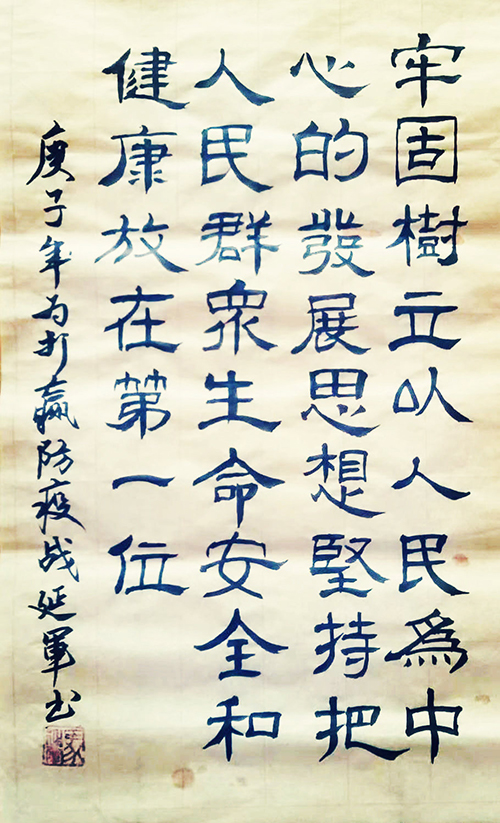 牢固樹立以人民為中
心的發展思想堅持把
人民群眾生命安全和
健康放在第一位
庚子年为打赢防疫战延軍书